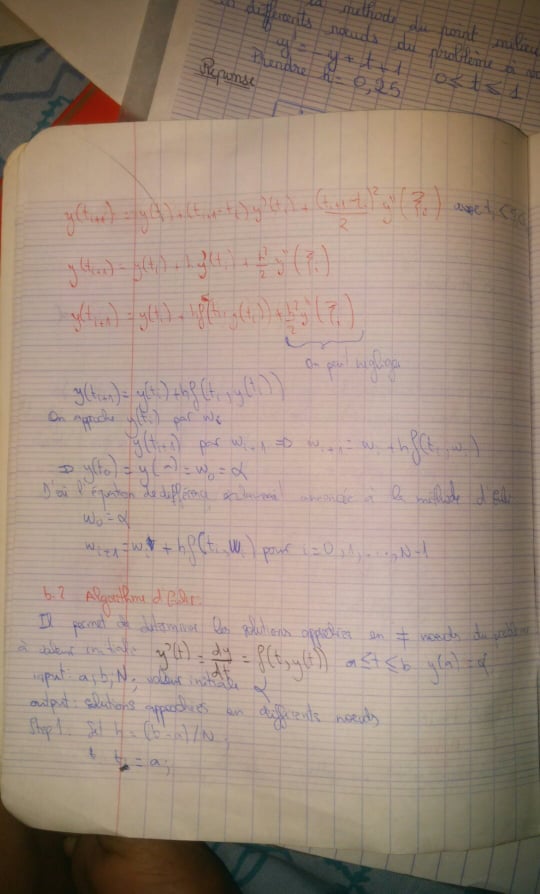 la methode du point milieu
en différents nœuds du problème à
y' = -y + t + 1
Prendre h = 0,25 0 ≤ t ≤ 1
Réponse
y(t_{i+1}) = y(t_i) + (t_{i+1} - t_i) y'(t_i) + \frac{(t_{i+1} - t_i)^2}{2} y''(ξ_i)
y(t_{i+1}) = y(t_i) + h y'(t_i) + \frac{h^2}{2} y''(ξ_i)
y(t_{i+1}) = y(t_i) + hf(t_i, y(t_i)) + \frac{h^2}{2} y''(ξ_i)
On peut négliger
y(t_{i+1}) = y(t_i) + hf(t_i, y(t_i))
On approche y(t_i) par w_i
y(t_{i+1}) par w_{i+1} ⇒ w_{i+1} = w_i + hf(t_i, w_i)
⇒ y(t_0) = y(a) = w_0 = α
D'où l'équation de différence à la méthode d'Euler
w_0 = α
w_{i+1} = w_i + hf(t_i, w_i) pour i = 0, 1, ..., N-1
b.2 Algorithme d'Euler.
Il permet de determiner les solutions approchées en ≠ nœuds du problème
à valeur initiale y'(t) = \frac{dy}{dt} = f(t, y(t)) a ≤ t ≤ b y(a) = α
input: a, b, N; valeur initiale α
output: solutions approchées en différents nœuds
Step 1. Set h = (b - a) / N;
t = a;